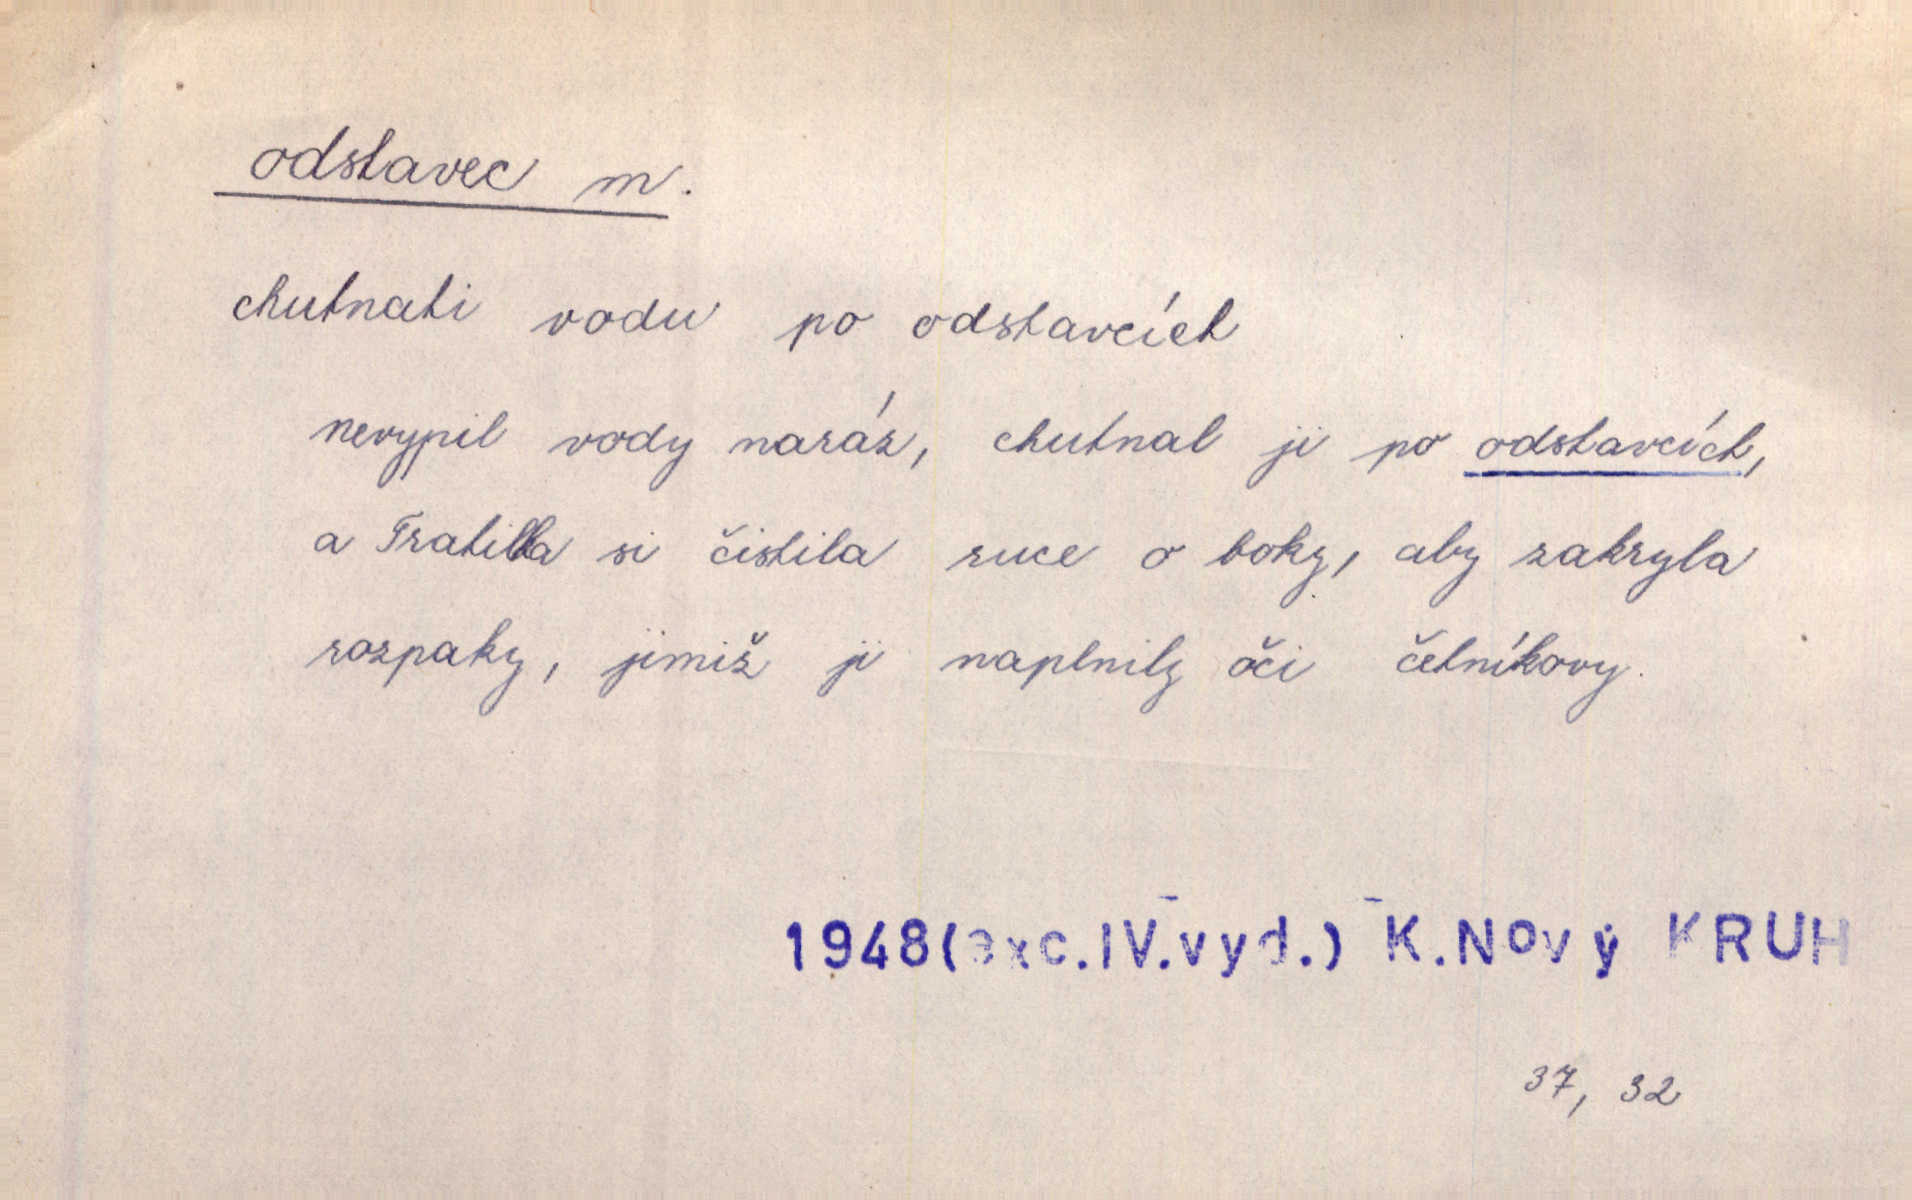 odstavec m.
chutnati vodu po odstavcích
nevypil vody naráz, chutnal ji po odstavcích,
a Tratilka si čistila ruce o boky, aby zakryla
rozpaky, jimiž ji naplnily oči četníkovy.
1948(exc.IV.vyd.) K.Nový KRUH
37, 32